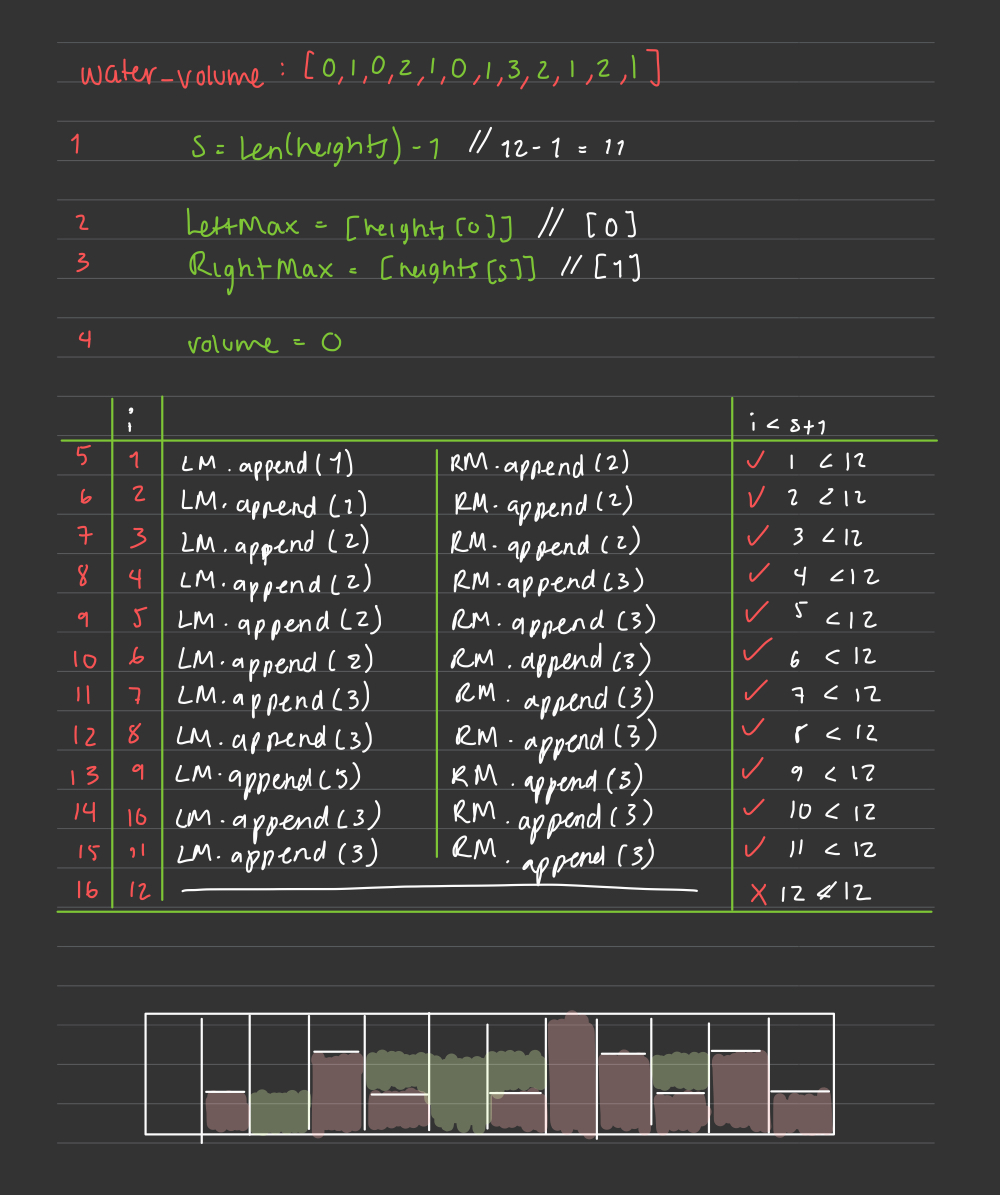 water_volume : [0,1,0,2,1,0,1,3,2,1,2,1]
1 S = Len(heights) - 1 // 12 - 1 = 11
2 LeftMax = [heights[0]] // [0]
3 RightMax = [heights[s]] // [1]
4 volume = 0
i i < s+1
5 1 LM.append(1) RM.append(2) ✓ 1 < 12
6 2 LM.append(1) RM.append(2) ✓ 2 < 12
7 3 LM.append(2) RM.append(2) ✓ 3 < 12
8 4 LM.append(2) RM.append(3) ✓ 4 < 12
9 5 LM.append(2) RM.append(3) ✓ 5 < 12
10 6 LM.append(2) RM.append(3) ✓ 6 < 12
11 7 LM.append(3) RM.append(3) ✓ 7 < 12
12 8 LM.append(3) RM.append(3) ✓ 8 < 12
13 9 LM.append(3) RM.append(3) ✓ 9 < 12
14 10 LM.append(3) RM.append(3) ✓ 10 < 12
15 11 LM.append(3) RM.append(3) ✓ 11 < 12
16 12 X 12 ≮ 12